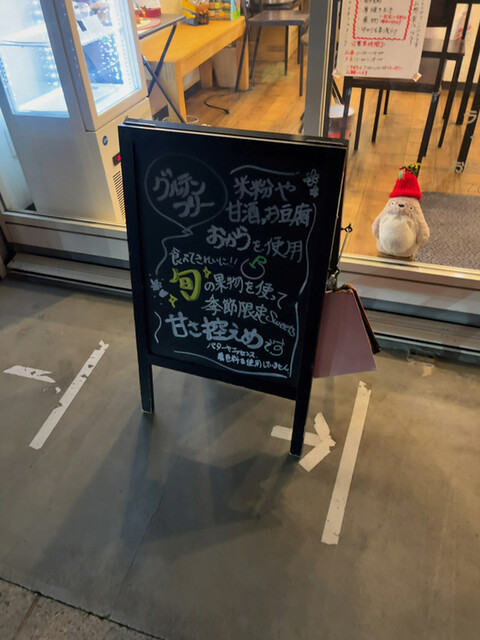 グルテン
フリー
米粉や
甘酒、お豆腐
おからを使用
食べてきれいに!!
旬の果物を使って
季節限定Sweets
甘さ控えめです
バターやエッセンス
着色料も使用していません